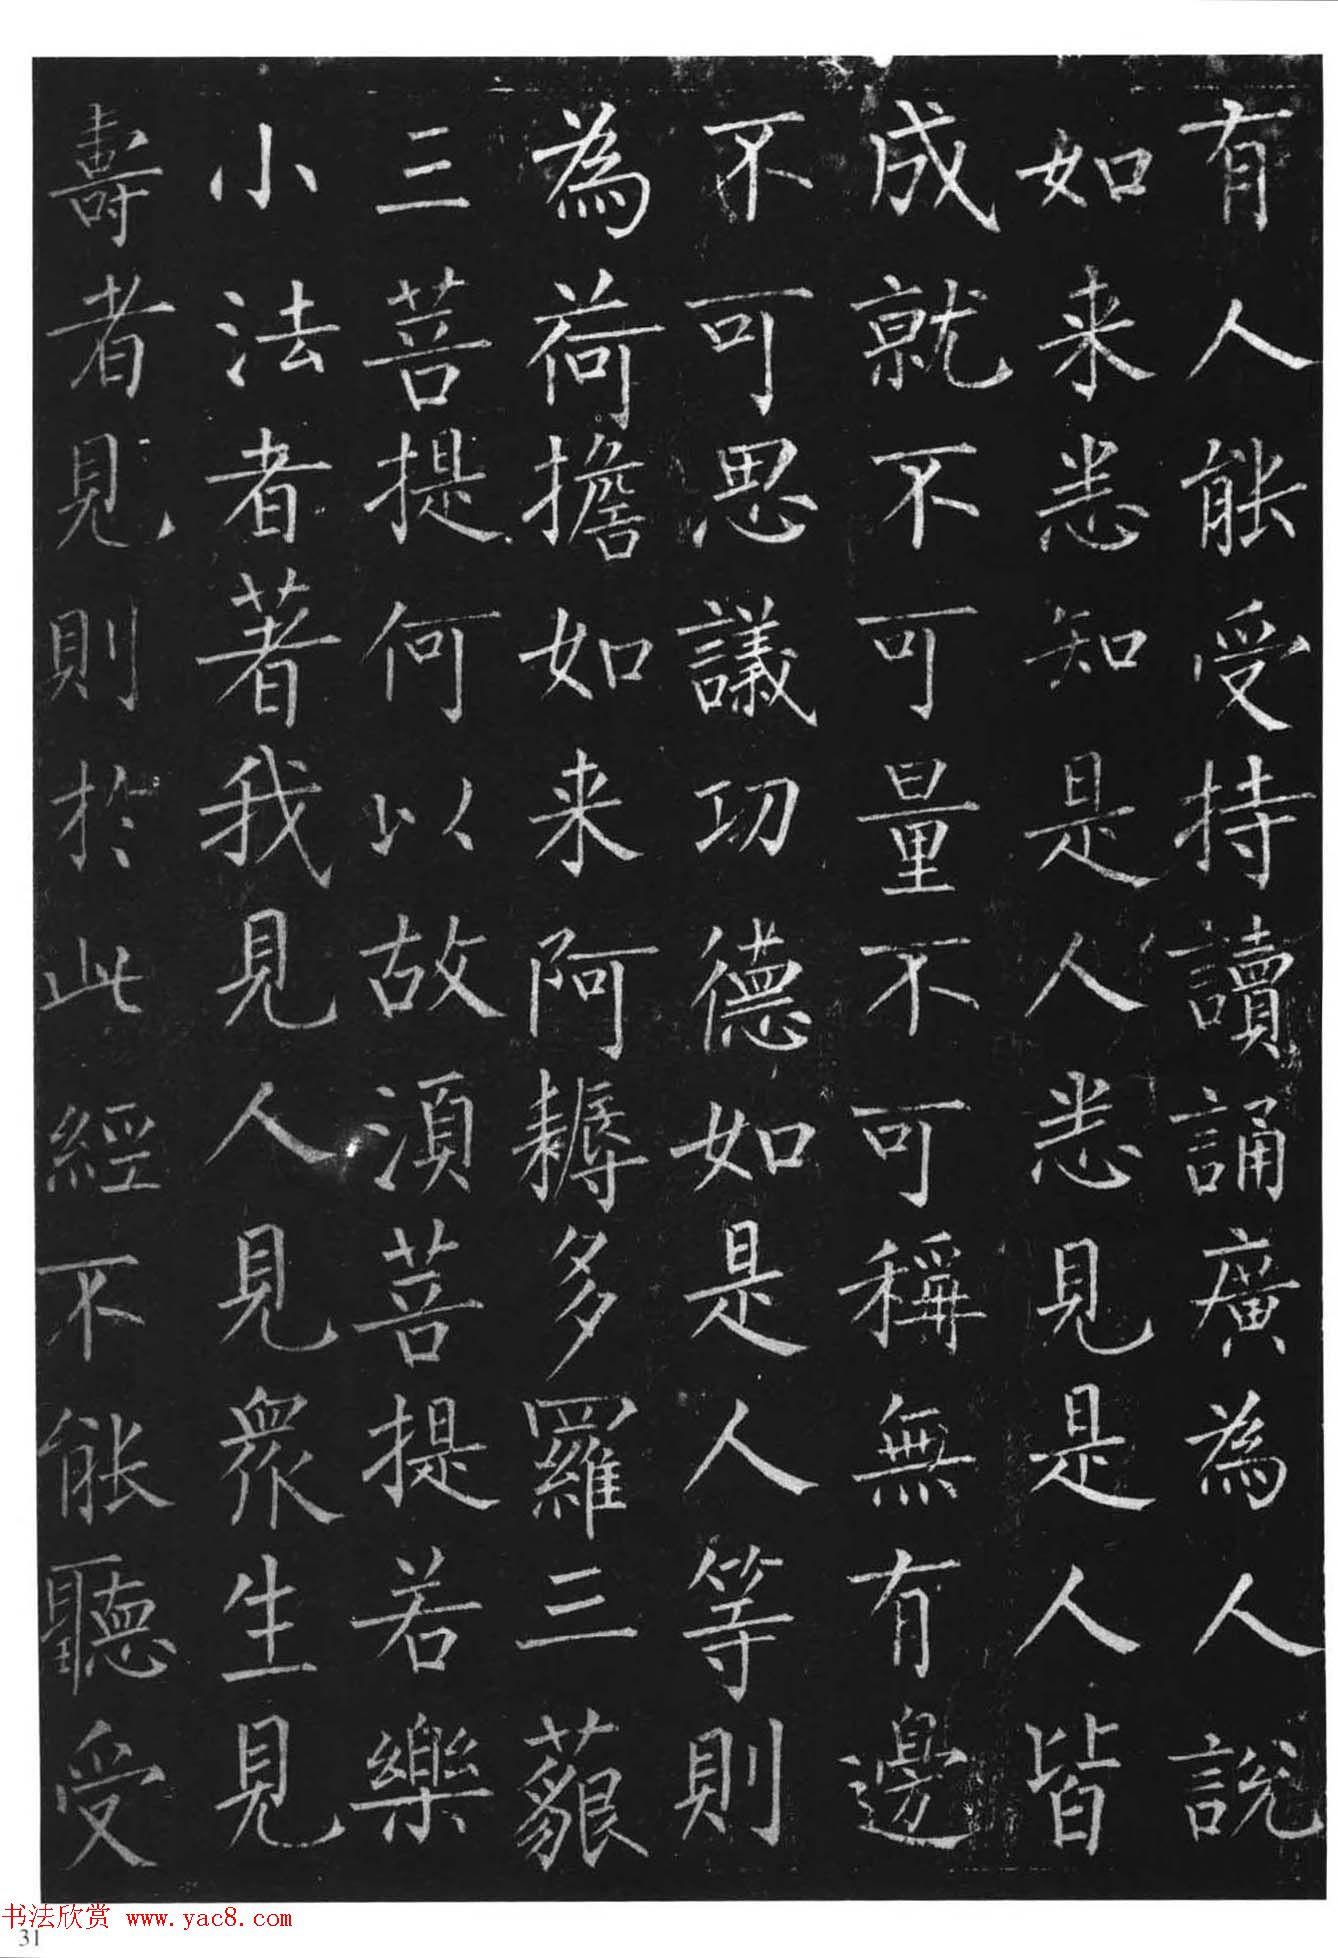 有人能受持讀誦廣為人說
如来悉知是人悉見是人皆
成就不可量不可稱無有邊
不可思議功德如是人等則
為荷擔如来阿耨多羅三藐
三菩提何以故湏菩提若樂
小法者著我見人見眾生見
壽者見則於此經不能聽受
书法欣赏 www.yac8.com
31